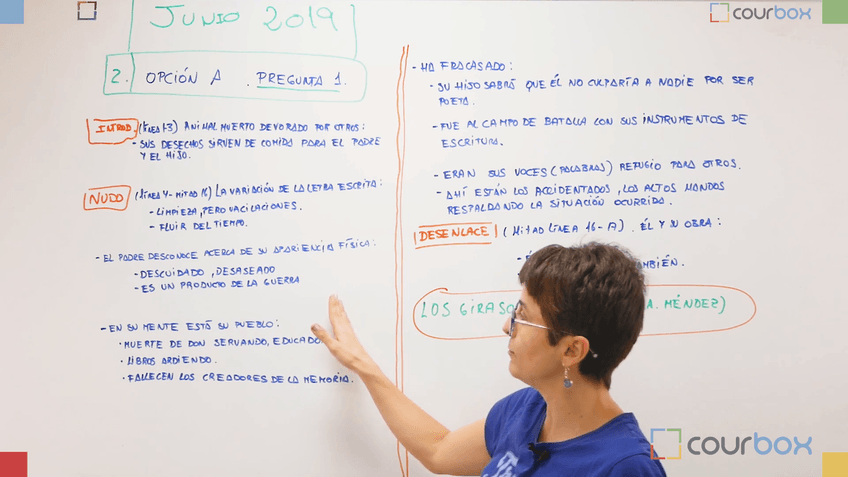 JUNIO 2019
courbox
2. OPCIÓN A . PREGUNTA 1.
INTROD. (LÍNEA 1-3) ANIMAL MUERTO DEVORADO POR OTROS:
- SUS DESECHOS SIRVEN DE COMIDA PARA EL PADRE
Y EL HIJO.
NUDO (LÍNEA 4- MITAD 16) LA VARIACIÓN DE LA LETRA ESCRITA:
- LIMPIEZA, PERO VACILACIONES.
- FLUIR DEL TIEMPO.
- EL PADRE DESCONOCE ACERCA DE SU APARIENCIA FÍSICA:
- DESCUIDADO, DESASEADO
- ES UN PRODUCTO DE LA GUERRA
- EN SU MENTE ESTÁ SU PUEBLO:
· MUERTE DE DON SERVANDO, EDUCADO
· LIBROS ARDIENDO.
· FALLECEN LOS CREADORES DE LA MEMORIA.
- HA FRACASADO:
- SU HIJO SABRÁ QUE ÉL NO CULPARÍA A NADIE POR SER
POETA.
- FUE AL CAMPO DE BATALLA CON SUS INSTRUMENTOS DE
ESCRITURA.
- ERAN SUS VOCES (PALABRAS) REFUGIO PARA OTROS.
- AHÍ ESTÁN LOS ACCIDENTADOS, LOS ALTOS MANDOS
RESPALDANDO LA SITUACIÓN OCURRIDA.
DESENLACE (MITAD LÍNEA 16-A). ÉL Y SU OBRA:
TAMBIÉN.
LOS GIRASO A. MÉNDEZ)
courbox